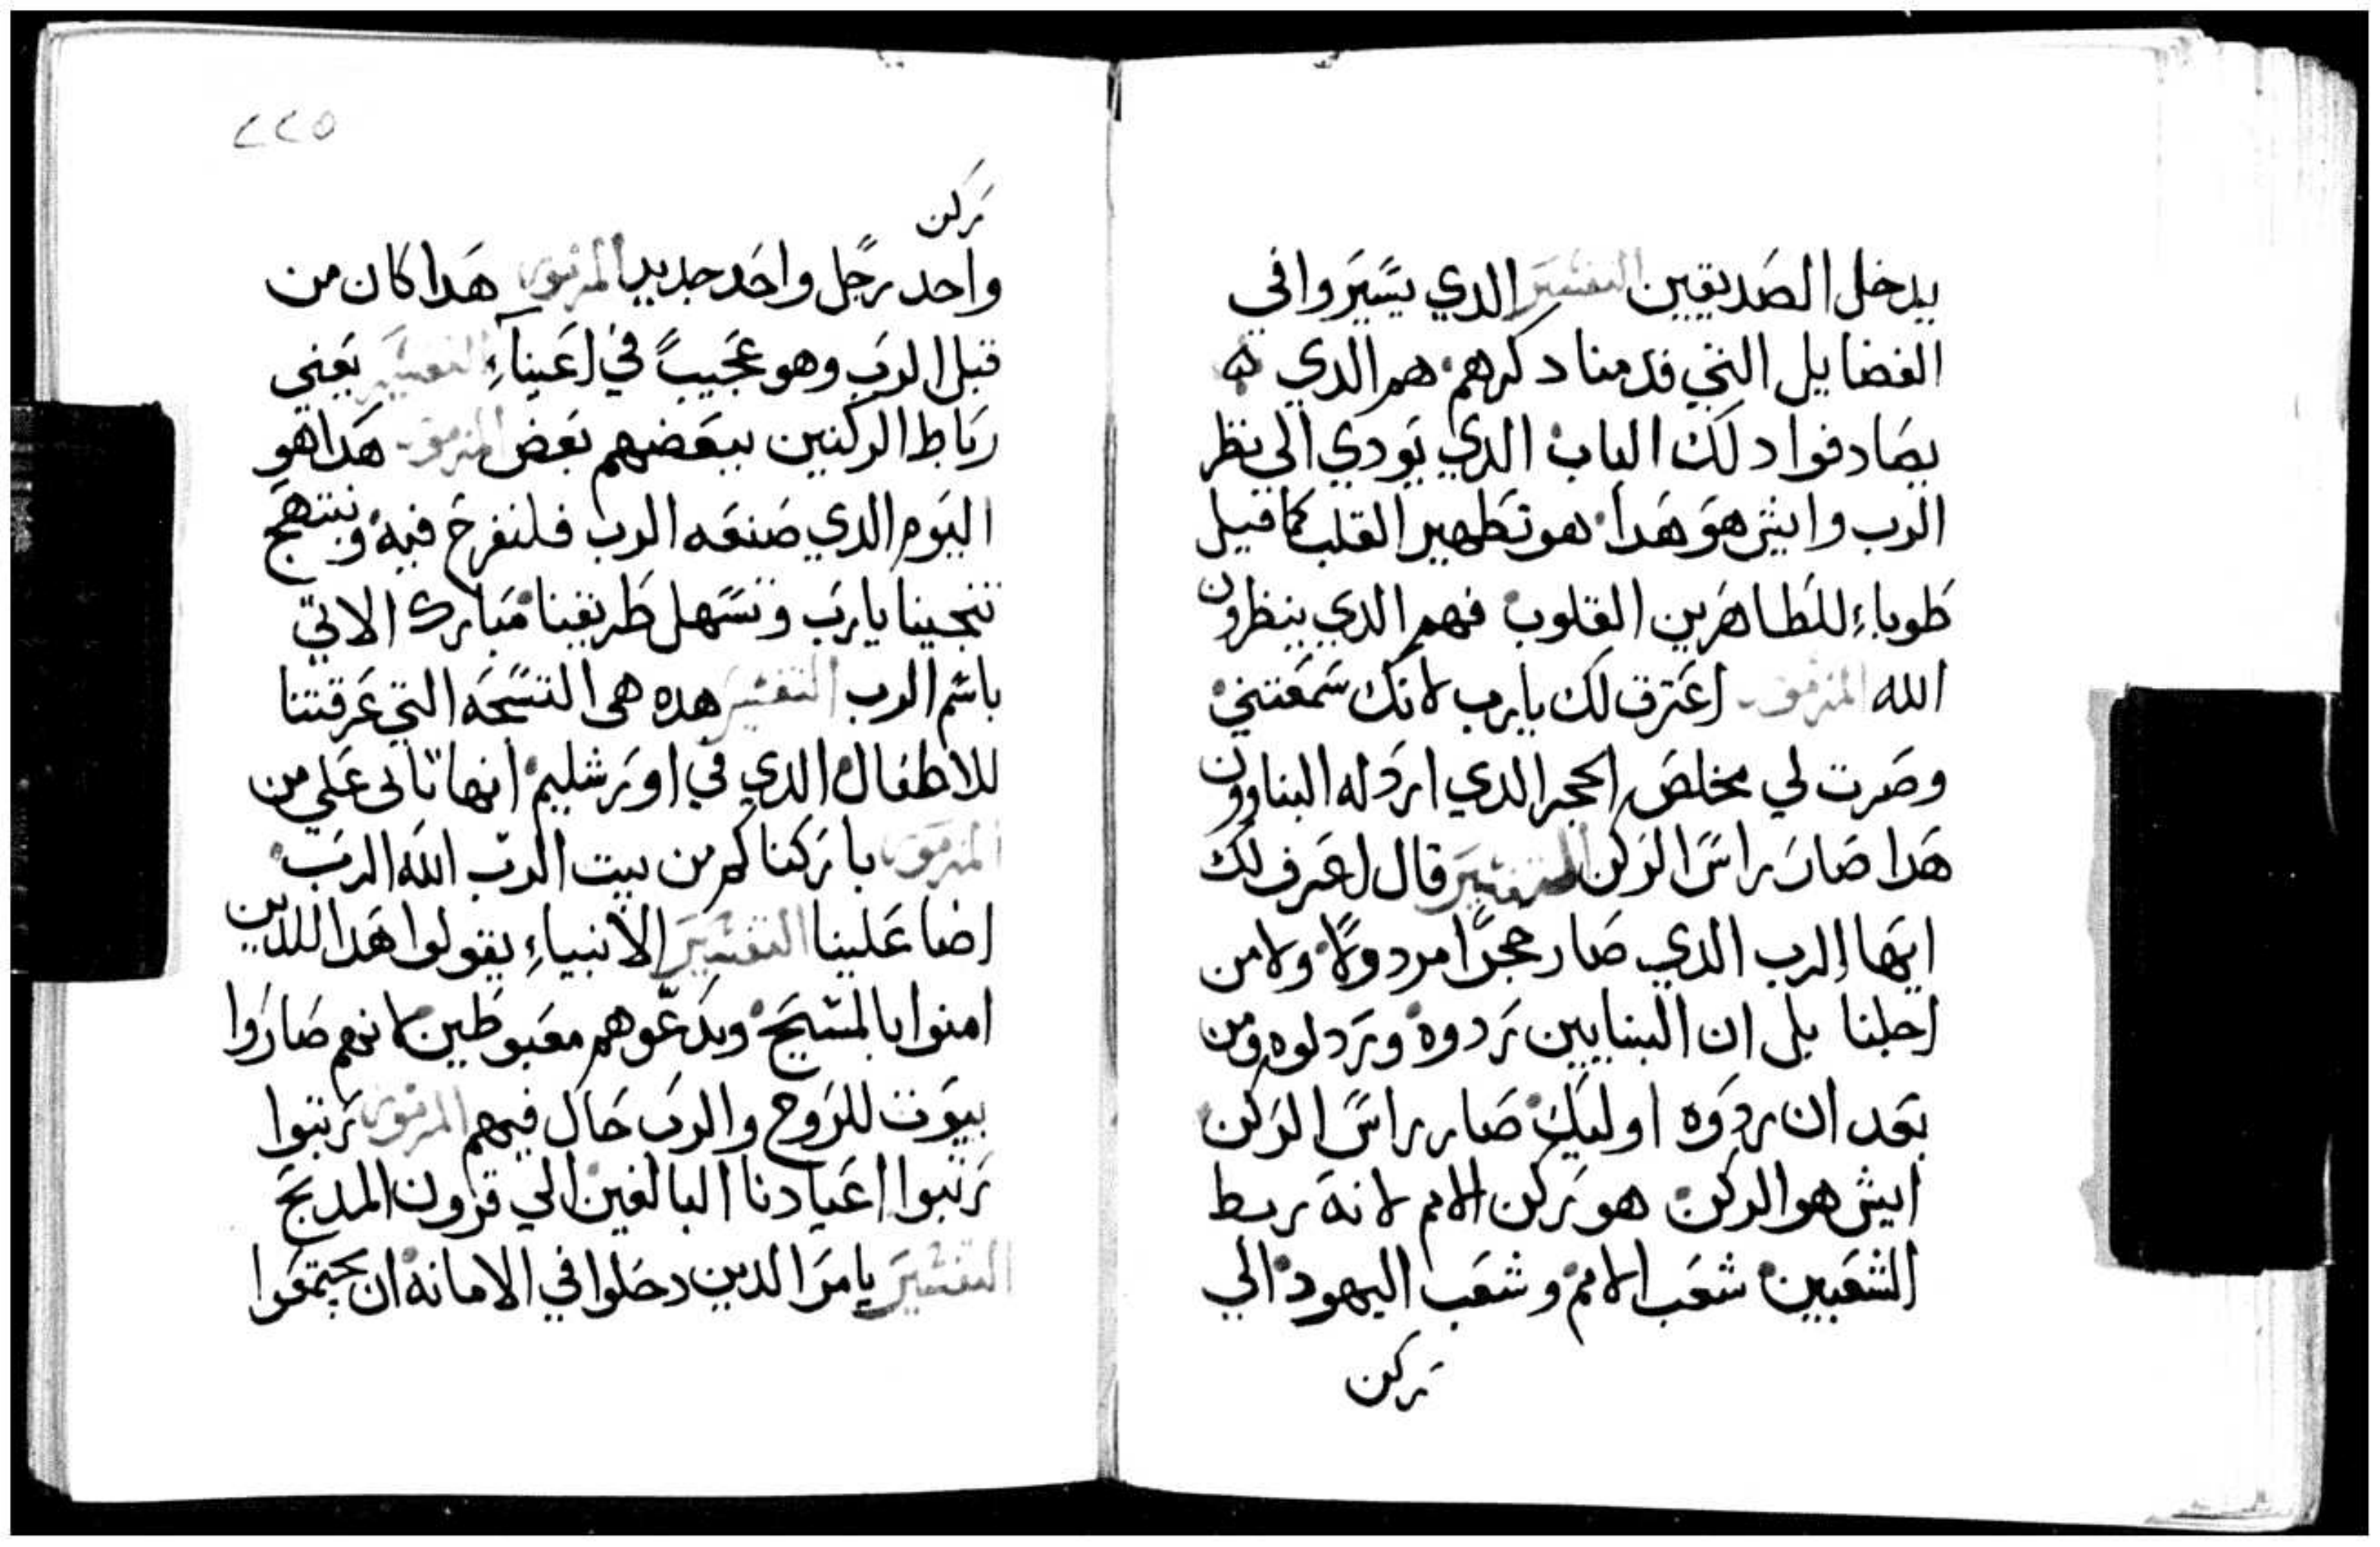 يدخل الصديقين التفسير الدي يسيروا في
الفضايل التي قدمنا دكرهم هم الدي
يصادفوا دلك الباب الدي يودي الي نظر
الرب وايش هو هدا هو تطهير القلب كما قيل
طوباء للطاهرين القلوب فهم الدي ينظرون
الله المزمور اعترف لك يارب لانك سمعتني
وصرت لي مخلص الحجر الدي اردله البناوون
هدا صار راس الركن التفسير قال اعترف لك
ايها الرب الدي صار حجرا مردولا ولامن
اجلنا بلي ان البنايين ردوه وردلوه ومن
بعد ان ردوه اوليك صار راس الركن
ايش هو الركن هو ركن الامم لانه ربط
الشعبين شعب الامم وشعب اليهود الي
ركن
٢٢٥
ركن
واحد رجل واحد جديد المزمور هدا كان من
قبل الرب وهو عجيب في اعيناء التفسير يعني
رباط الركنين ببعضهم بعض المزمور هدا هو
اليوم الدي صنعه الرب فلنفرح فيه ونبتهج
تنجينا يارب وتسهل طريقنا مبارك الاتي
باسم الرب التفسير هده هي التسبحه التي عرفتنا
للاطفال الدي في اورشليم انها تاتي علي من
المزمور باركناكم من بيت الرب الله الرب
اضا علينا التفسير الانبياء يقولوا هدا للدين
امنوا بالمسيح ويدعوهم مغبوطين لانهم صاروا
بيوت للروح والرب حال فيهم المزمور رتبوا
رتبوا اعيادنا البالغين الي قرون المدبح
التفسير يامر الدين دخلوا في الامانه ان يجتمعوا